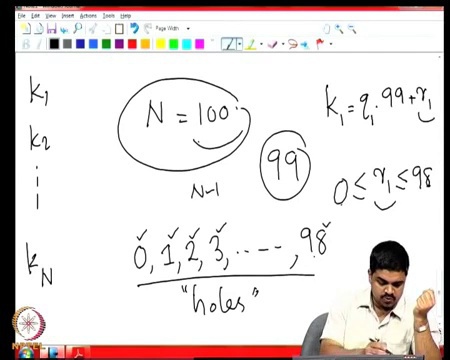 File Edit View Insert Actions Tools Help
Page Width
k₁
k₂
k_N
N = 100
N-1
99
k₁ = q₁·99 + r₁
0 ≤ r₁ ≤ 98
0, 1, 2, 3, ----, 98
"holes"